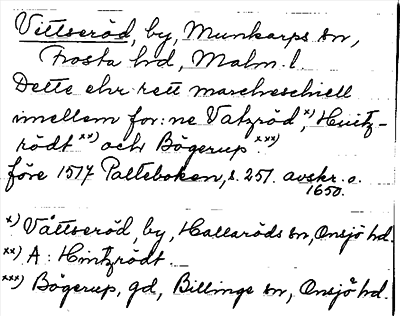 Vittseröd, by, Munkarps sn,
Frosta hd, Malm. l.
Dette ehr rett marcheschiell
imellem for:ne Vatzröd,x) Huitz-
rödtxx) och Bögerupxxx).
före 1517 Palteboken, s. 251. avskr. o.
1650.
x) Våttseröd, by, Hallaröds sn, Onsjö hd.
xx) A: Hintzrödt.
xxx) Bögerup, gd, Billinge sn, Onsjö hd.